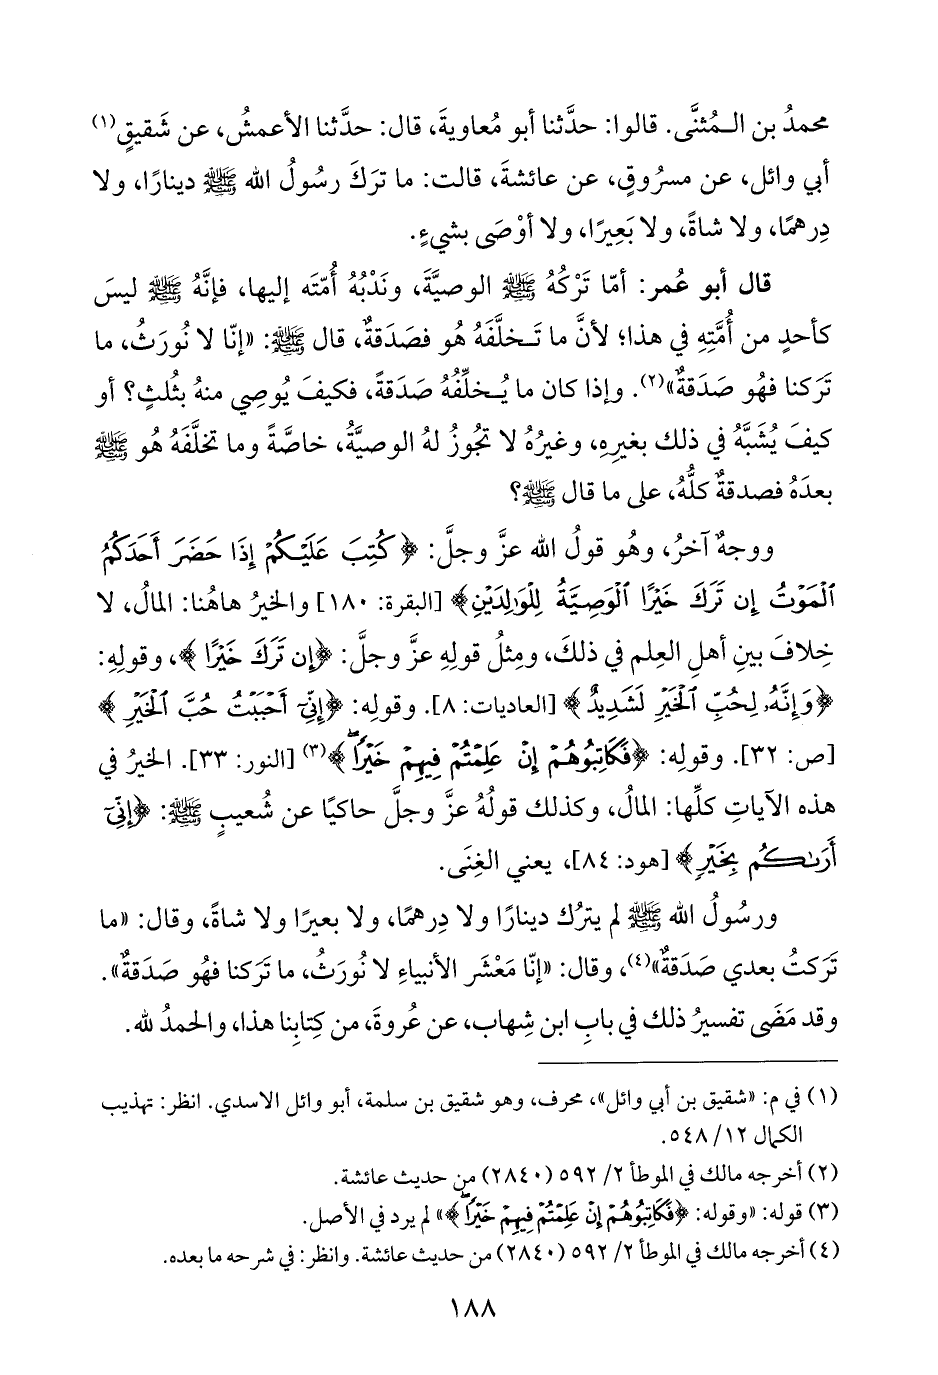 محمدُ بن الـمُثنَّى. قالوا: حدَّثنا أبو مُعاويةَ، قال: حدَّثنا الأعمشُ، عن شَقيقٍ(١)
أبي وائل، عن مسرُوقٍ، عن عائشةَ، قالت: ما تركَ رسُولُ الله ﷺ دينارًا، ولا
دِرهمًا، ولا شاةً، ولا بَعِيرًا، ولا أوْصَى بشيءٍ.
قال أبو عُمر: أمّا تَرْكُهُ ﷺ الوصيَّةَ، ونَدْبُهُ أُمَّته إليها، فإنَّهُ ﷺ ليسَ
كأحدٍ من أُمَّتِهِ في هذا؛ لأنَّ ما تَـخلَّفَهُ هُو فصَدَقةٌ، قال ﷺ: «إنّا لا نُورَثُ، ما
تَركنا فهُو صَدَقةٌ»(٢). وإذا كان ما يُـخلِّفُهُ صَدَقةً، فكيفَ يُوصِي منهُ بثُلثٍ؟ أو
كيفَ يُشَبَّهُ في ذلك بغيرِهِ، وغيرُهُ لا تجُوزُ لهُ الوصيَّةُ، خاصَّةً وما تخلَّفَهُ هُو ﷺ
بعدَهُ فصدقةٌ كلُّهُ، على ما قال ﷺ؟
ووجهٌ آخرُ، وهُو قولُ الله عزَّ وجلَّ: ﴿كُتِبَ عَلَيْكُمْ إِذَا حَضَرَ أَحَدَكُمُ
ٱلْمَوْتُ إِن تَرَكَ خَيْرًا ٱلْوَصِيَّةُ لِلْوَٰلِدَيْنِ﴾ [البقرة: ١٨٠] والخيرُ هاهُنا: المالُ، لا
خِلافَ بينِ أهلِ العِلم في ذلكَ، ومِثلُ قولِهِ عزَّ وجلَّ: ﴿إِن تَرَكَ خَيْرًا﴾، وقولِهِ:
﴿وَإِنَّهُۥ لِحُبِّ ٱلْخَيْرِ لَشَدِيدٌ﴾ [العاديات: ٨]. وقولِه: ﴿إِنِّىٓ أَحْبَبْتُ حُبَّ ٱلْخَيْرِ﴾
[ص: ٣٢]. وقولِه: ﴿فَكَاتِبُوهُمْ إِنْ عَلِمْتُمْ فِيهِمْ خَيْرًاۖ﴾(٣) [النور: ٣٣]. الخيرُ في
هذه الآياتِ كلِّها: المالُ، وكذلك قولُهُ عزَّ وجلَّ حاكيًا عن شُعيبٍ ﷺ: ﴿إِنِّىٓ
أَرَىٰكُم بِخَيْرٍ﴾ [هود: ٨٤]، يعني الغِنَى.
ورسُولُ الله ﷺ لم يترُك دينارًا ولا دِرهمًا، ولا بعيرًا ولا شاةً، وقال: «ما
تَركتُ بعدي صَدَقةٌ»(٤)، وقال: «إنّا مَعْشَر الأنبياءِ لا نُورَثُ، ما تَركنا فهُو صَدَقةٌ».
وقد مَضَى تفسيرُ ذلك في بابِ ابن شِهاب، عن عُروةَ، من كِتابِنا هذا، والحمدُ لله.
(١) في م: «شقيق بن أبي وائل»، محرف، وهو شقيق بن سلمة، أبو وائل الاسدي. انظر: تهذيب
الكمال ١٢/ ٥٤٨.
(٢) أخرجه مالك في الموطأ ٢/ ٥٩٢ (٢٨٤٠) من حديث عائشة.
(٣) قوله: «وقوله: ﴿فَكَاتِبُوهُمْ إِنْ عَلِمْتُمْ فِيهِمْ خَيْرًاۖ﴾» لم يرد في الأصل.
(٤) أخرجه مالك في الموطأ ٢/ ٥٩٢ (٢٨٤٠) من حديث عائشة. وانظر: في شرحه ما بعده.
١٨٨